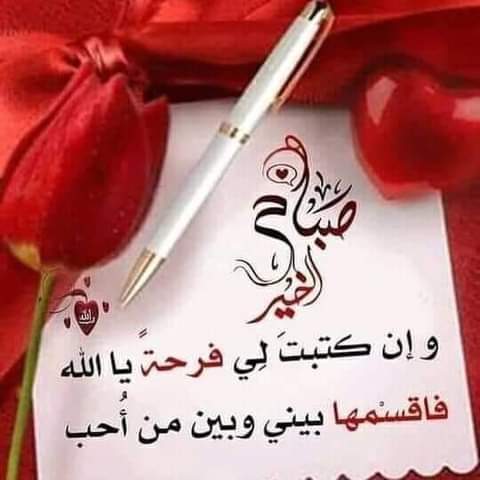 صباح
الخير
و إن كتبتَ لِي فرحةً يا الله
فاقسْمها بيني وبين من أُحب